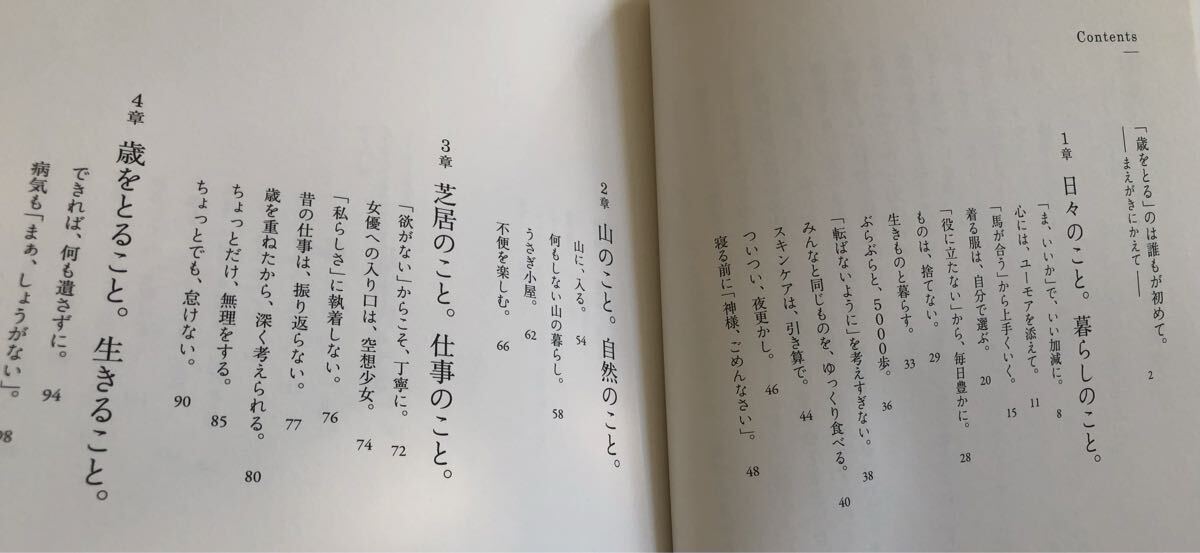 Contents
「歳をとる」のは誰もが初めて。
――まえがきにかえて―― 2
1章 日々のこと。暮らしのこと。
「ま、いいか」で、いい加減に。 8
心には、ユーモアを添えて。 11
「馬が合う」から上手くいく。 15
着る服は、自分で選ぶ。 20
「役に立たない」から、毎日豊かに。 28
ものは、捨てない。 29
生きものと暮らす。 33
ぶらぶらと、5000歩。 36
「転ばないように」を考えすぎない。 38
みんなと同じものを、ゆっくり食べる。 40
スキンケアは、引き算で。 44
ついつい、夜更かし。 46
寝る前に「神様、ごめんなさい」。 48
2章 山のこと。自然のこと。
山に、入る。 54
何もしない山の暮らし。 58
うさぎ小屋。 62
不便を楽しむ。 66
3章 芝居のこと。仕事のこと。
「欲がない」からこそ、丁寧に。 72
女優への入り口は、空想少女。 74
「私らしさ」に執着しない。 76
昔の仕事は、振り返らない。 77
歳を重ねたから、深く考えられる。 80
ちょっとだけ、無理をする。 85
ちょっとでも、怠けない。 90
4章 歳をとること。生きること。
できれば、何も遺さずに。 94
病気も「まぁ、しょうがない」。 98